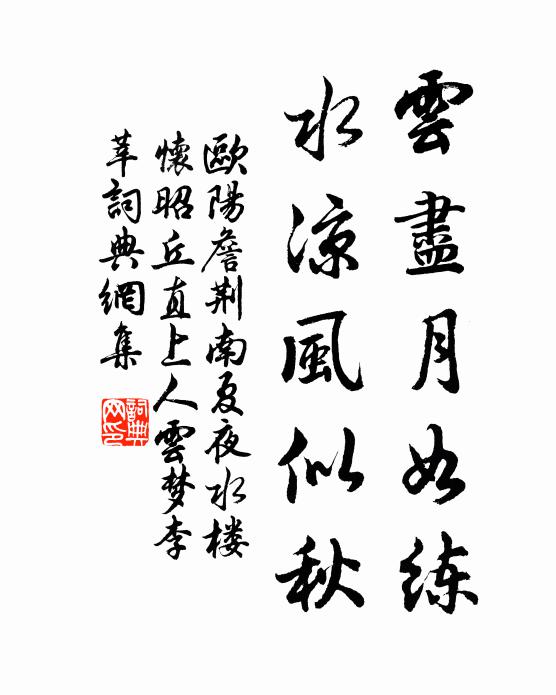 雲盡月如练
水涼風似秋
歐陽詹荆南夏夜水楼
懷昭丘直上人雲梦李
莘詞典網集
詞典
网印